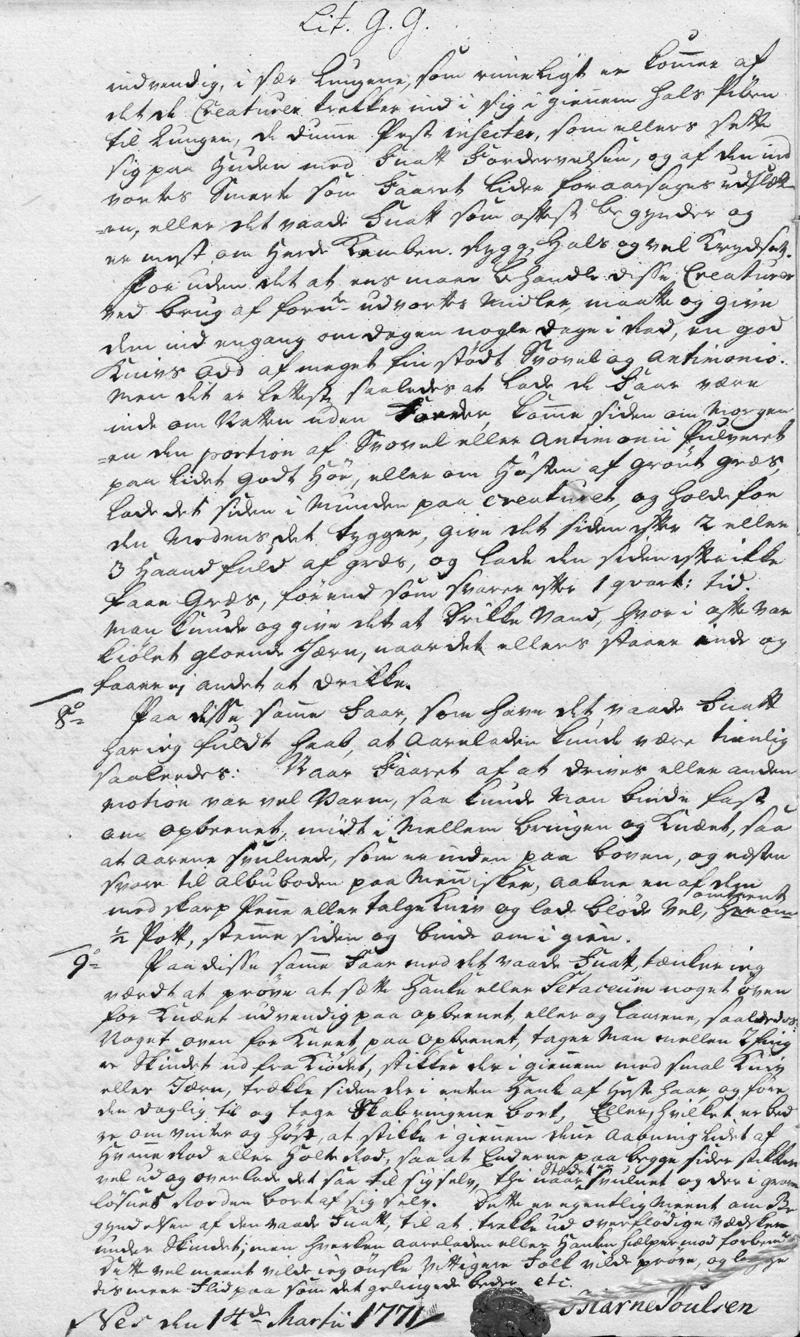 Lit. G. G.
indvendig, i sær Lungene, som rimeligt er kommer af
det de Creaturer trekker ind i sig i giennem Hals Piben
til Lungen, de dumme Pest insecter, som ellers sætte
sig paa Huden med Fnatt Fordervelsen, og af den ind
vortes Smerte som Faaret lider foraarsages udslætt
=en, eller det vaade Fnatt som oftest begynder og
er mest om Herde Kamben. Rygg, Hals og vel Krydset.
For uden det at ens maar behandle disse Creaturer
ved brug af forn: udvortes Midler, maatte og give
dem ind engang om dagen nogle dage i Rad, en god
Knivs Odd af meget fin stødt Svovel og Antimonio.
Men det er lettest saaledes at lade de Faar være
inde om Natten uden Foeder, komme siden om Morgen
=en den portion af Svovel eller Antimonii Pulveret
paa lidet godt Höe, eller om Høsten af grönt græs,
lade det siden i Munden paa Creaturet, og holde for
den Medens det tygger, give det siden efter 2 eller
3 Haand fuld af græs, og lade den siden efter ikke
faae Græs, förend som svarer efter 1 qvart: tid.
Man kunde og give det at Drikke Vand, hvor i ofte var
kiölet gloende Jærn, naar det ellers staaer inde og
faaer ej andet at Drikke.
8°= Paa disse samme Faar, som have det vaade Fnatt
har ieg fuldt haab, at Aareladen kunde være tienlig
saaledes: Naar Faaret af at drives eller anden
motion var vel Varm, saa kunde Man binde fast
om Opbeenet, midt i Mellem bringen og Knæet, saa
at Aarene svulnede, som er inden paa boven, og næsten
svare til Albuboden paa Mennisker, aabne en af dem
med skarp Penne eller talge Kniv og lad blöde Vel, omtrent
½ Pott, stemme siden og binde om i gien.
9°= Paa disse samme Faar med det vaade Fnatt, tænker ieg
værdt at pröve at sætte Hanke eller Setaceum noget oven
for Knæet udvendig paa Opbeenet, eller og Laarene, saaledes:
Noget oven for Knæet, paa Opbeenet, tager Man mellem 2 fing
re Skindet ud fra Kiödet, stikker der i giennem med smal Kniv
eller Jærn, trække siden der i enten Hank af Heste haar og före
den daglig til og tage Skabringene bort, Eller, hvilket er bed
re om vinter og Höst, at stikke i giennem denne Aabning lidet af
Hvene Rod eller Holte Rod, saa at Enderne paa begge sider stikker
vel ud og overlade det saa til sig selv, thi naar Stædet er svulnet og der i gravn
løsnes Roden bort af sig selv. Dette er egentlig meent om Be
gyndelsen af den vaade Fnatt, til at trekke ud overflødige Vædsker
under Skindet; men hverken Aareladen eller Hanken hielper mod forbend
Dette vel meent vilde ieg önske Vittigere Folk vilde pröve, og legge
des meere Flid paa som det gelingede beder etc.
Nes den 14de Martii 1771 Biarne Poulsen